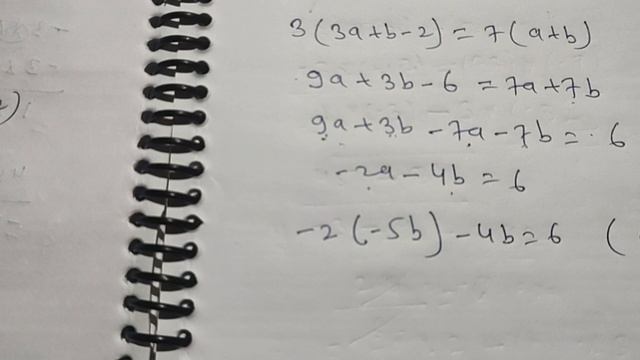 3(3a+b-2) = 7(a+b)
9a+3b-6 = 7a+7b
9a+3b-7a-7b = 6
-2a-4b = 6
-2(-5b)-4b=6 (